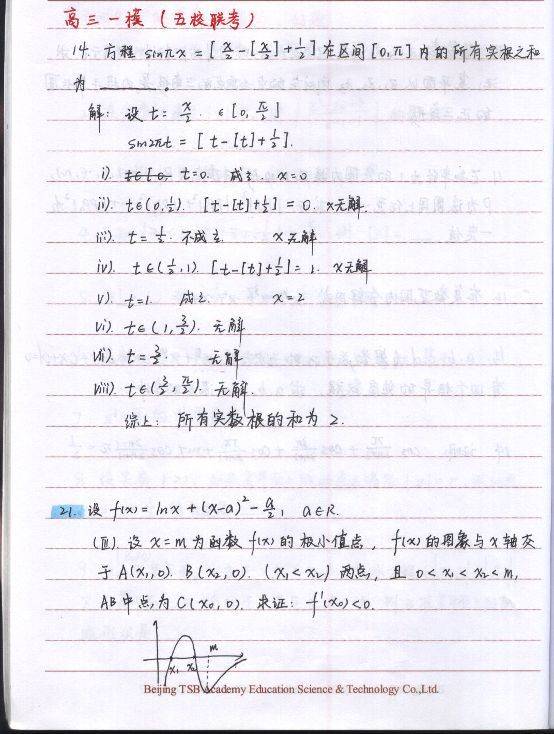 高三一模（五校联考）
14. 方程 sinπx = [x/2 - [x/2] + 1/2] 在区间 [0, π] 内的所有实根之和
为 ______ 。
解： 设 t = x/2 . ∈ [0, π/2]
sin2πt = [t - [t] + 1/2].
i). t∈[0, t=0. 成立 x=0
ii). t∈(0, 1/2). [t-[t]+1/2] = 0. x无解
iii). t = 1/2. 不成立. x无解
iv). t∈(1/2, 1). [t-[t]+1/2] = 1. x无解
v). t=1. 成立. x=2
vi). t∈(1, 3/2). 无解
vii). t=3/2. 无解
viii). t∈(3/2, π/2). 无解.
综上： 所有实数根的和为 2.
21. 设 f(x) = lnx + (x-a)² - a/2, a∈R.
(Ⅲ). 设 x=m 为函数 f(x) 的极小值点， f(x) 的图象与 x 轴交
于 A(x₁,0). B(x₂,0). (x₁<x₂) 两点，且 0<x₁<x₂<m,
AB中点为 C(x₀,0). 求证： f'(x₀)<0.
x₁ x₂ m
Beijing TSB Academy Education Science & Technology Co.,Ltd.